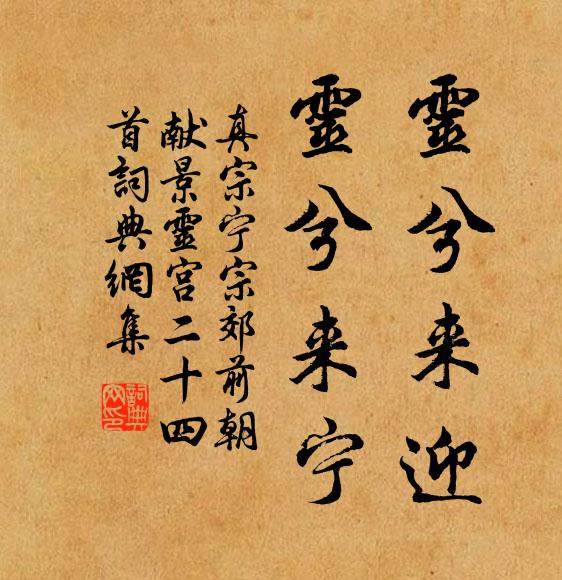 靈兮来迎
靈兮来宁
真宗宁宗郊前朝
献景靈宫二十四
首詞典網集
詞典
网印